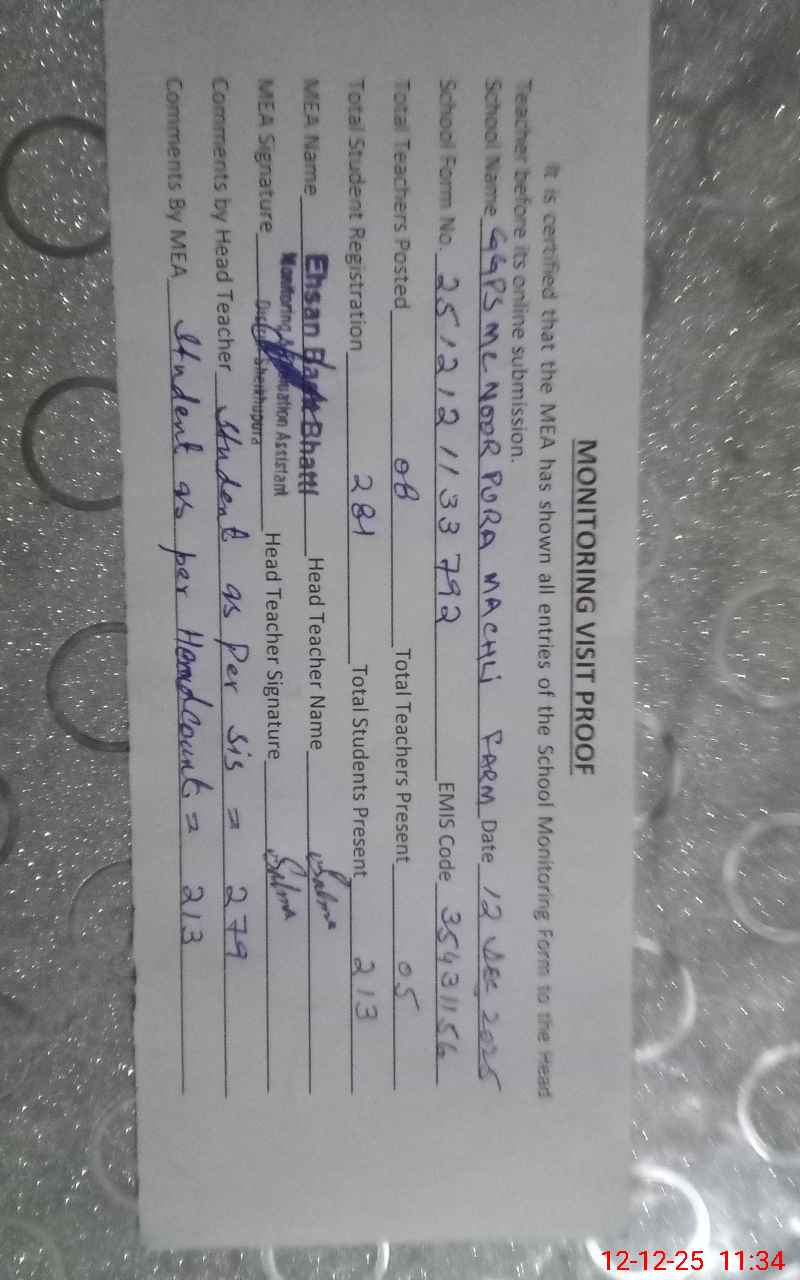 MONITORING VISIT PROOF
It is certified that the MEA has shown all entries of the School Monitoring Form to the Head
Teacher before its online submission.
School Name GGPS MC NOOR PURA MACHLI FARM Date 12 DEC 2025
School Form No. 2512121133792 EMIS Code 35431156
Total Teachers Posted 08 Total Teachers Present 05
Total Student Registration 281 Total Students Present 213
MEA Name Ehsan Bhatti Head Teacher Name Salma
Monitoring Assistant
MEA Signature Head Teacher Signature Salma
Sheikhupura
Comments by Head Teacher Student as Per sis = 279
Comments By MEA Student as per Headcount = 213
12-12-25 11:34